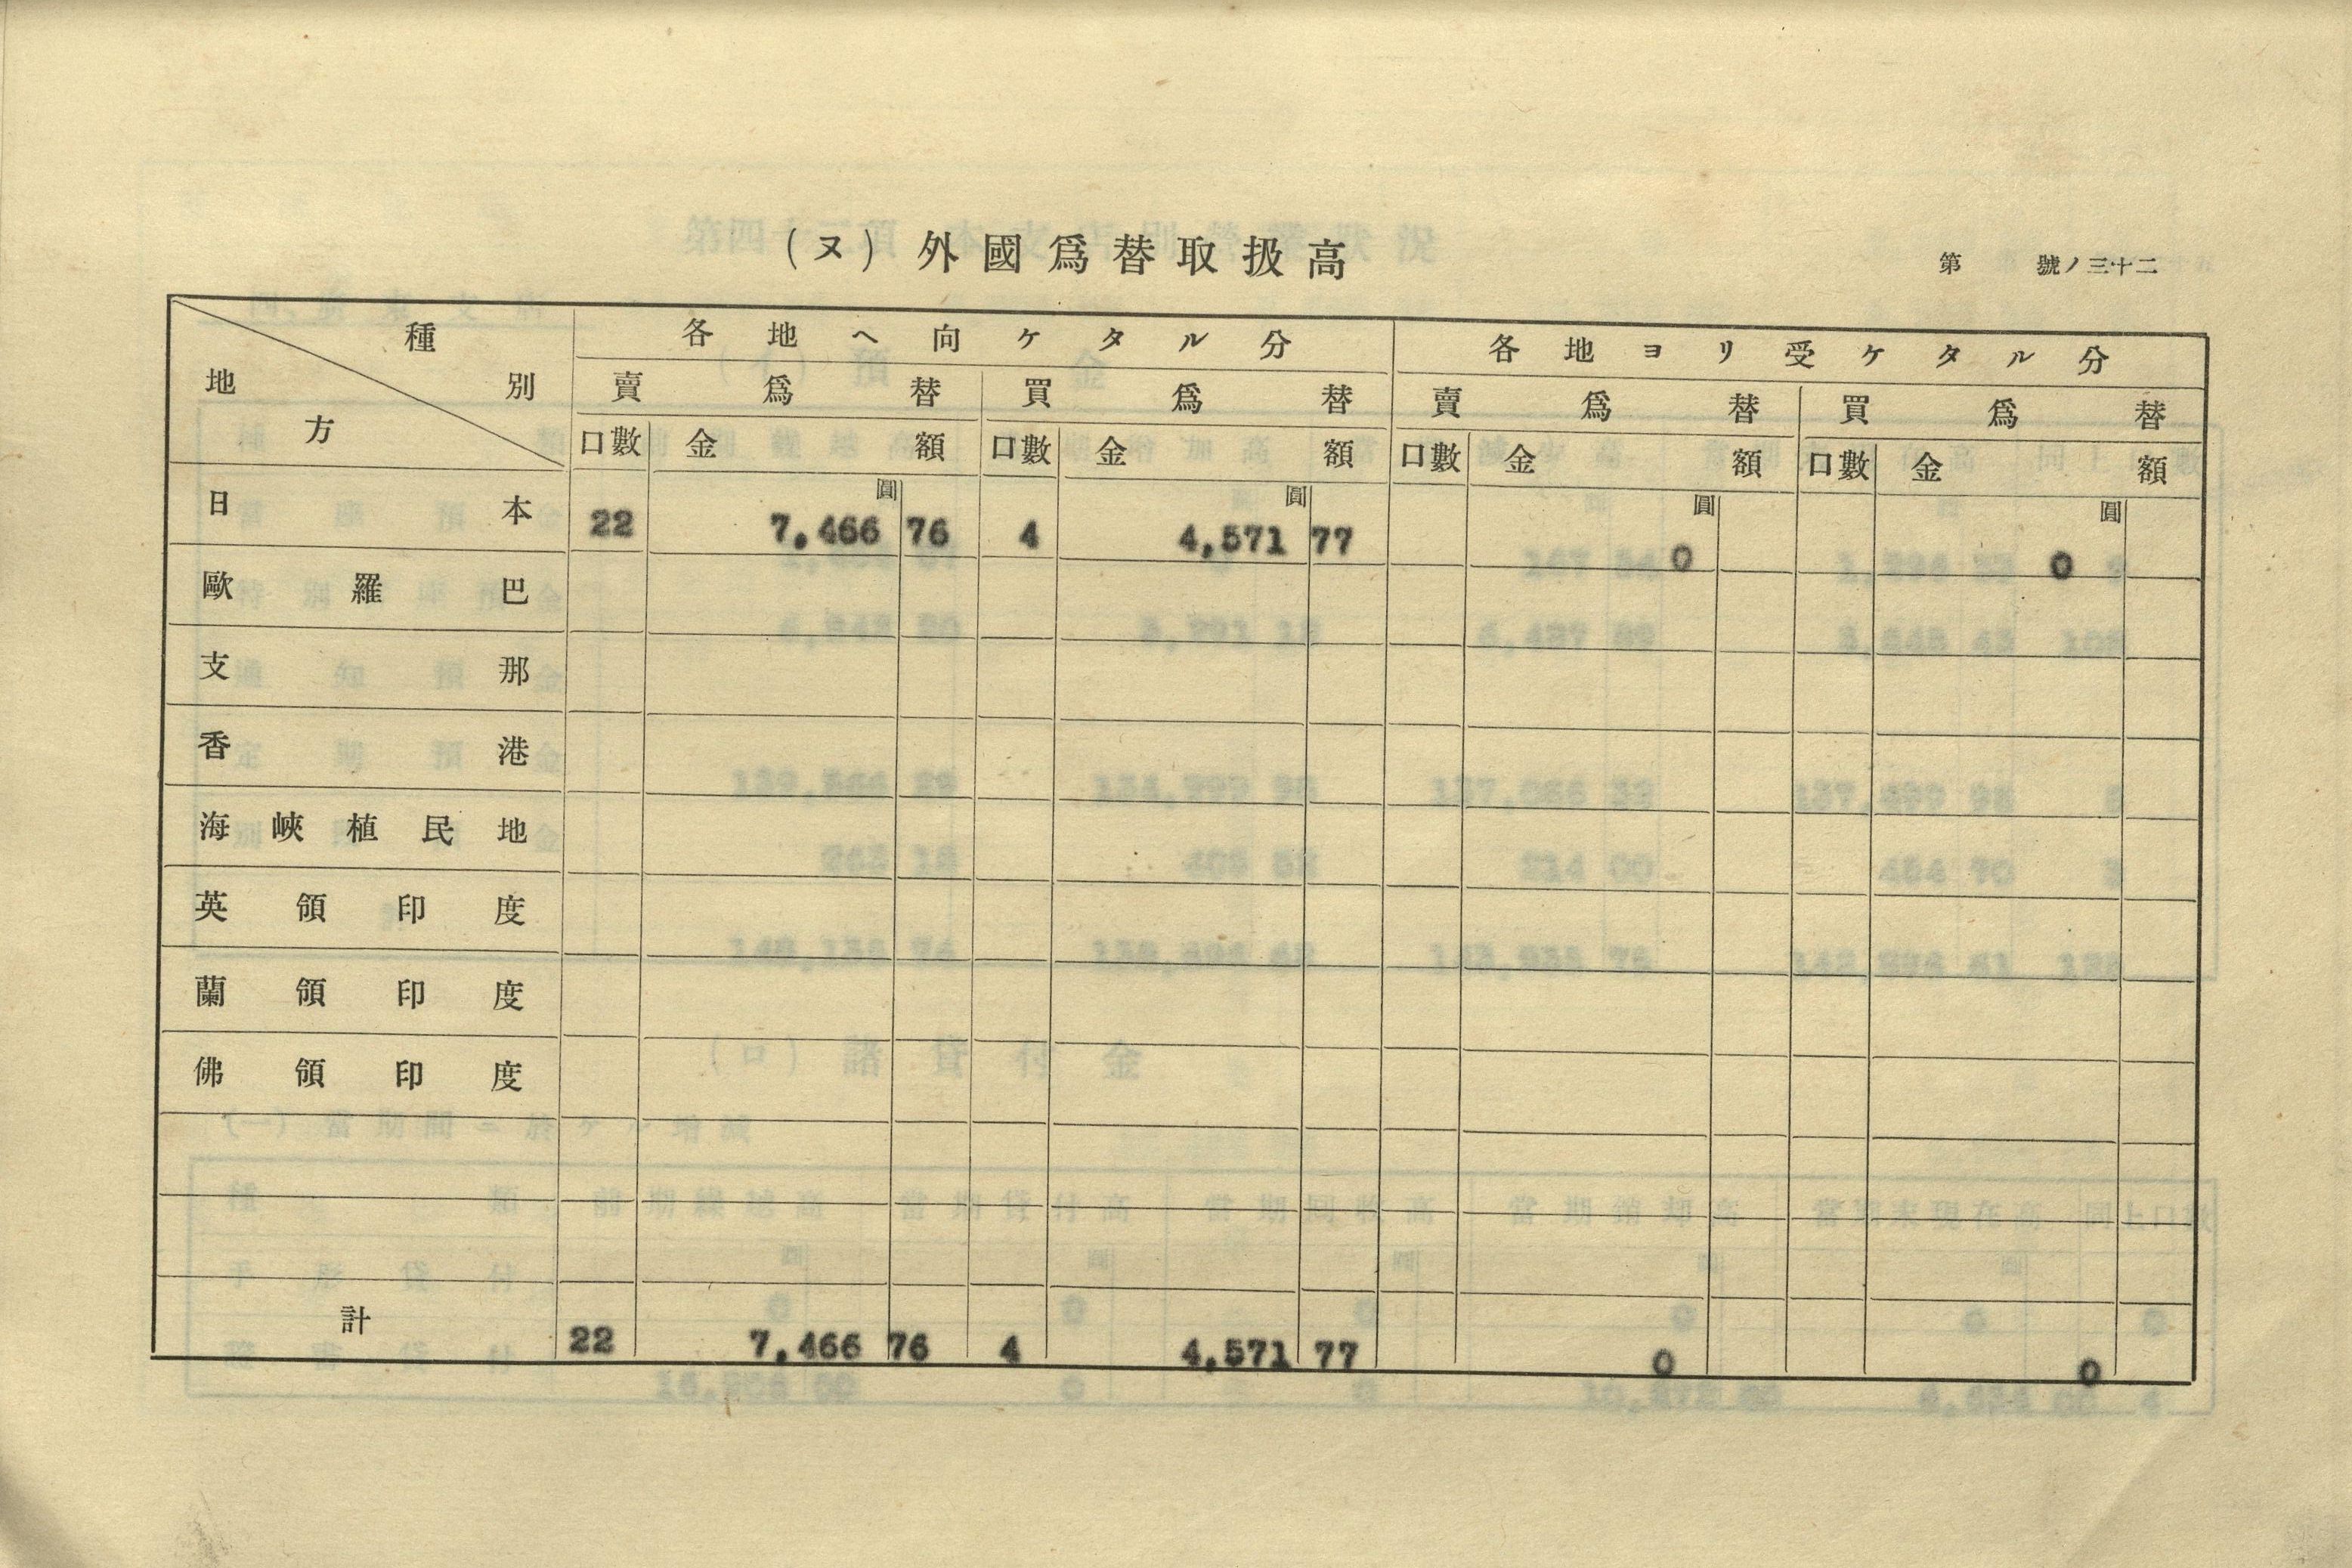 (ヌ) 外國爲替取扱高
第 號ノ三十二
種別 地方
各地ヘ向ケタル分 各地ヨリ受ケタル分
賣爲替 買爲替 賣爲替 買爲替
口數 金額 口數 金額 口數 金額 口數 金額
圓 圓 圓 圓
日本 22 7,466 76 4 4,571 77 0 0
歐羅巴
支那
香港
海峽植民地
英領印度
蘭領印度
佛領印度
計 22 7,466 76 4 4,571 77 0 0